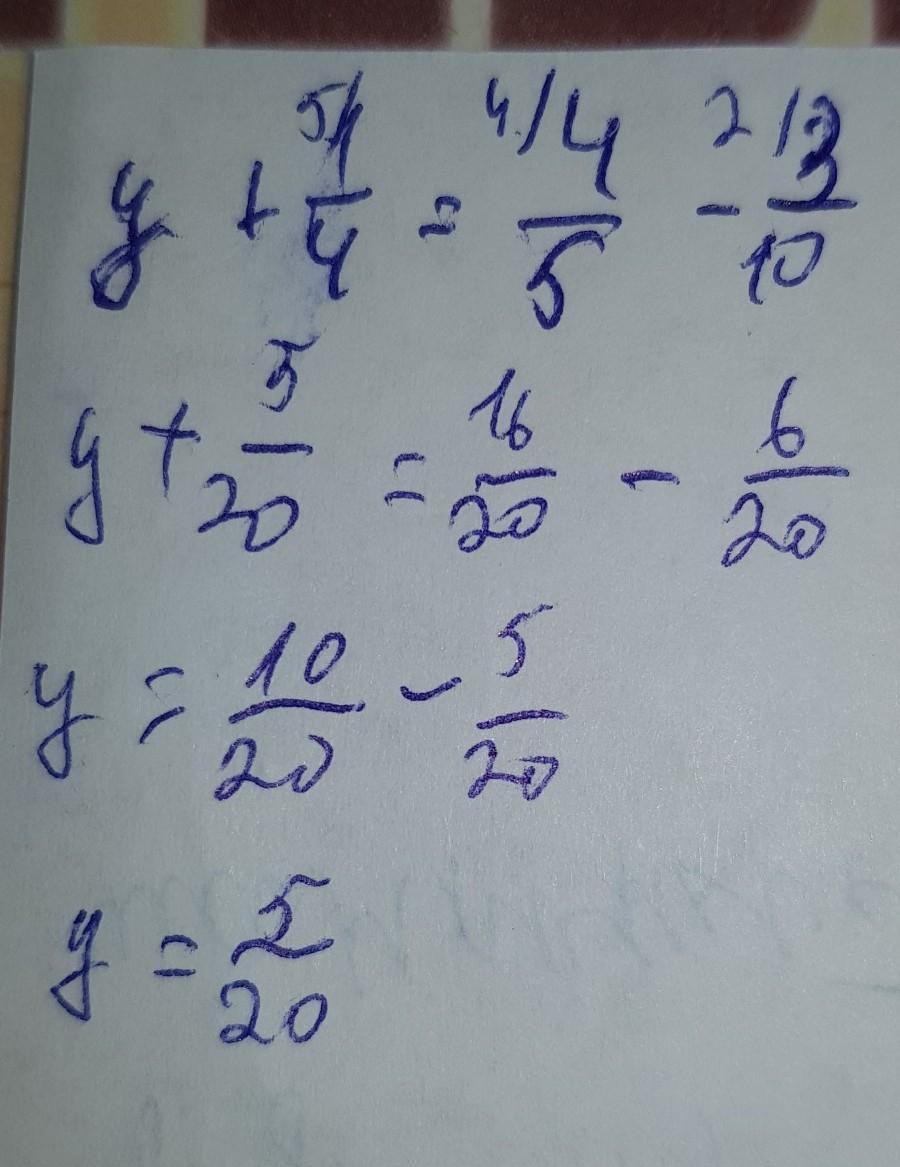 y + 5/1/4 = 4/4/5 - 2/3/10
y + 5/20 = 16/20 - 6/20
y = 10/20 - 5/20
y = 5/20